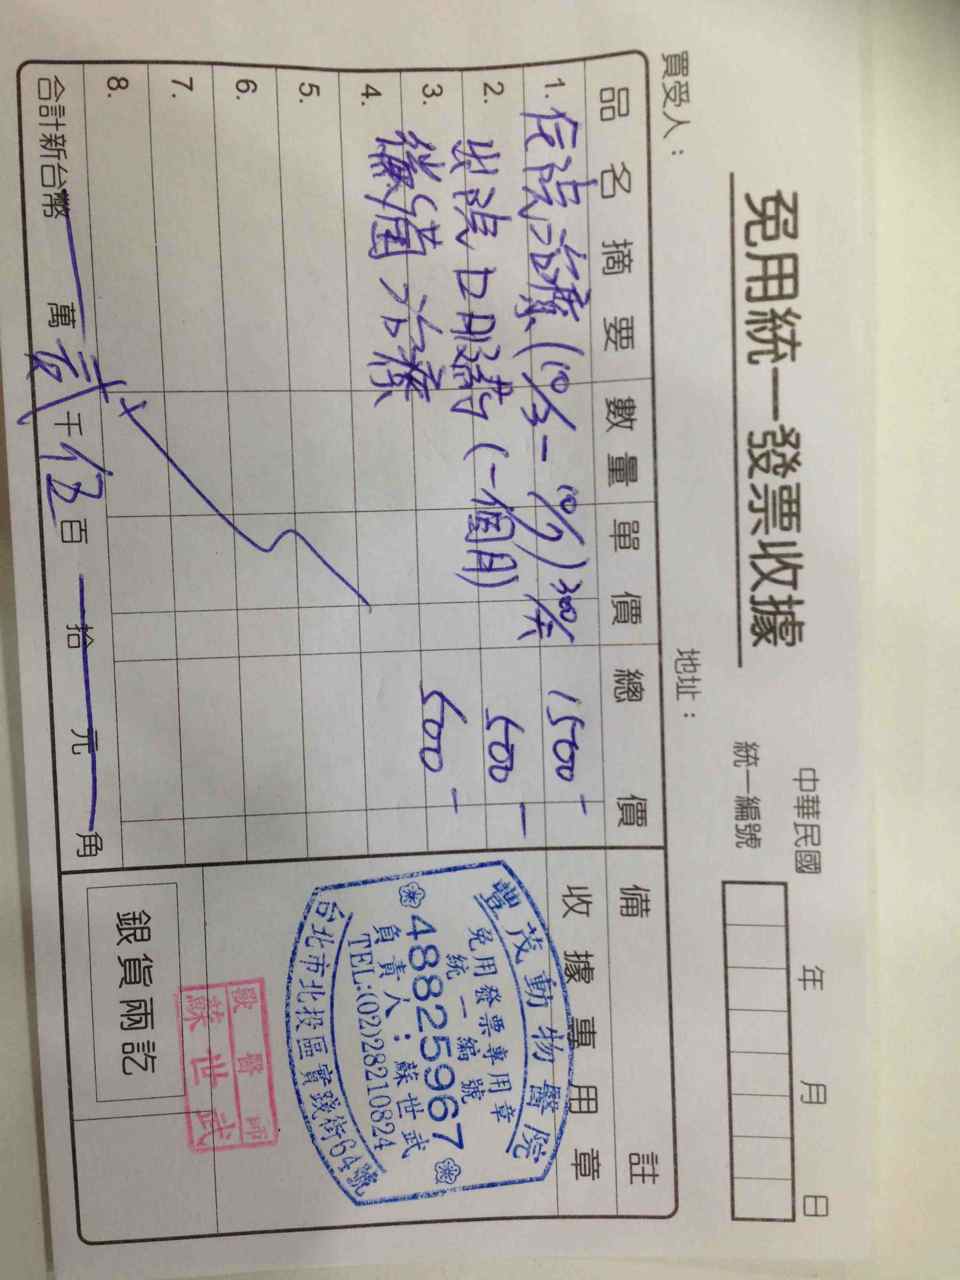 免用統一發票收據
中華民國 年 月 日
統一編號
買受人： 地址：
品名摘要 數量 單價 總價 備註
1. 住院治療(10/3-10/7)300/天 1500-
收據專用章
2. 出院口服藥(一個月) 500-
3. 黴菌治療 500-
4.
5.
6.
7.
8.
合計新台幣 萬 貳千伍百 拾 元 角
豐茂動物醫院
免用發票專用章
統一編號
48825967
負責人：蘇世武
TEL:(02)28210824
台北市北投區實踐街64號
獸醫師
蘇世武
銀貨兩訖